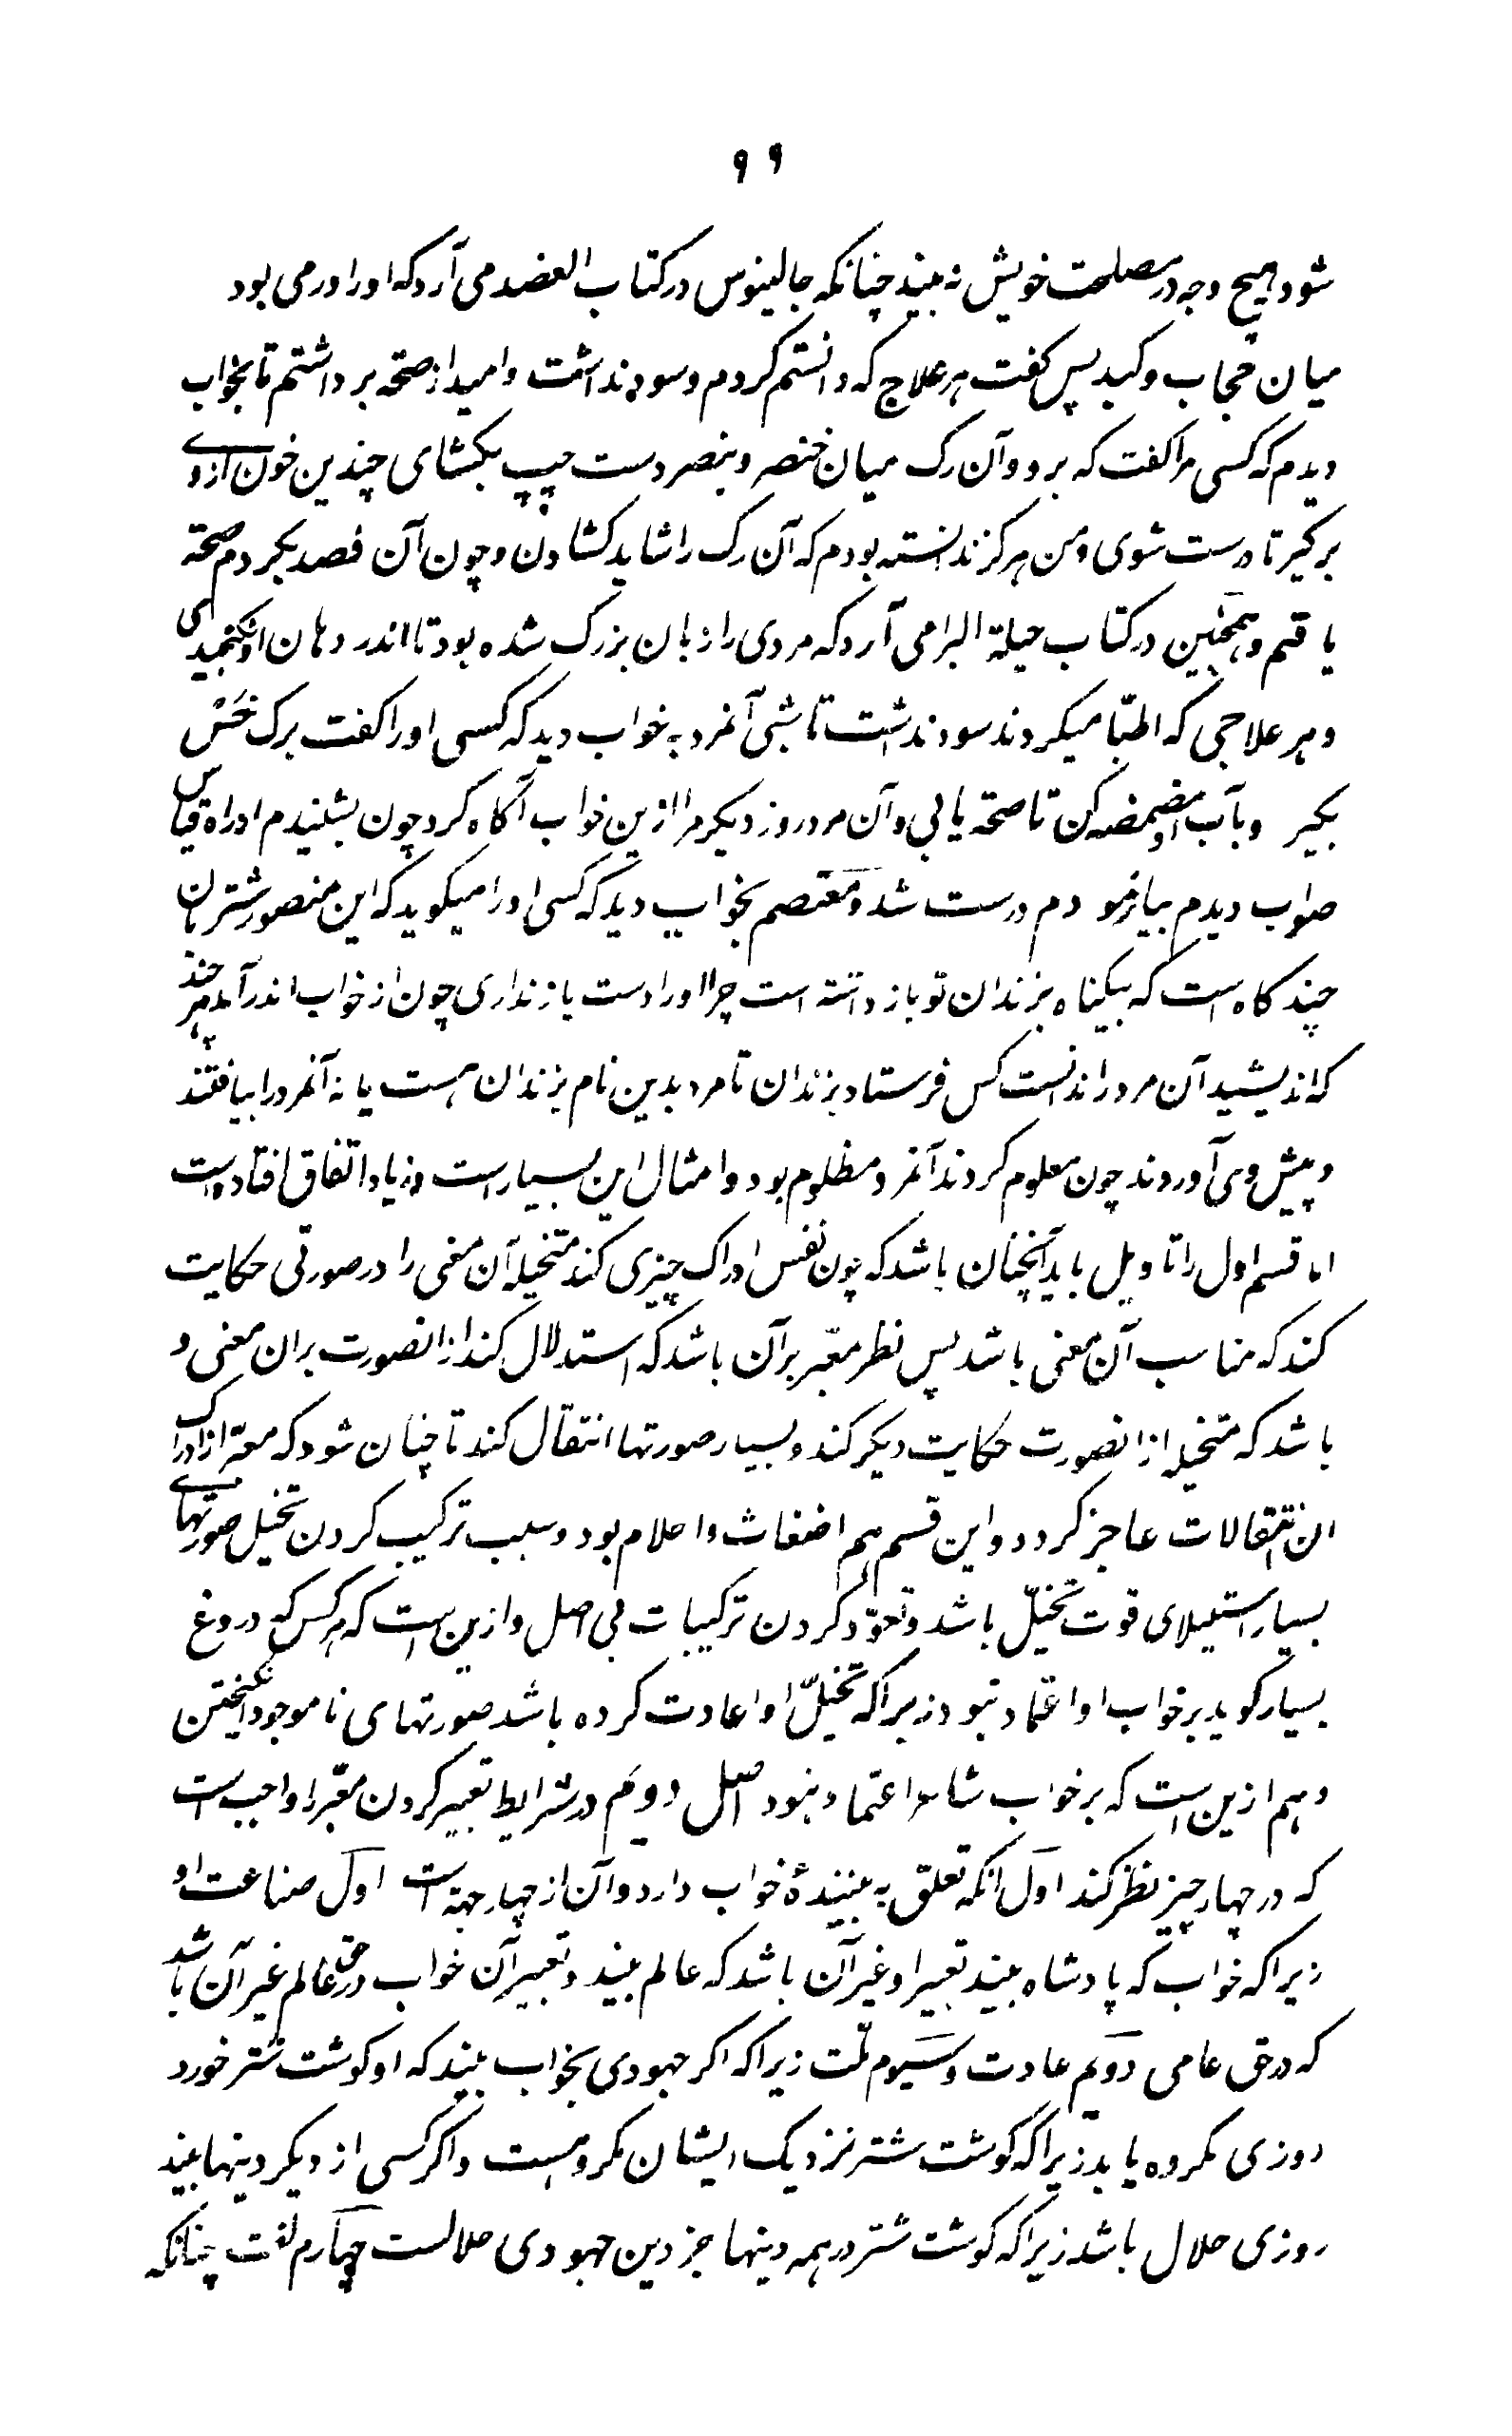 ۹۹
شود هیچ وجه در مصلحت خویش نه بیند چنانکه جالینوس در کتاب الفصد می آرد که او را ورمی بود
میان حجاب و کبد پس کفت هر علاج که دانستم کردم و سود نداشت و امید از صحة برداشتم تا بخواب
دیدم که کسی مرا کفت که برو و آن رک میان خنصر و بنصر دست چپ بکشای چندین خون ازوے
برکیر تا درست شوی و من هرکز ندانسته بودم که آن رک را شاید کشادن و چون آن فصد بکردم صحة
یافتم و همچنین در کتاب حیلة البرا می آرد که مردی را زبان بزرک شده بود تا اندر دهان او نکنجیدی
و هر علاجی که اطبّا میکردند سود نداشت تا شبی آنمرد به خواب دید که کسی او را کفت برک خس
بکیر و بآب او مضمضه کن تا صحة یابی و آن مرد روز دیکر مرا ازین خواب آکاه کرد چون بشنیدم او را قیاس
صواب دیدم بیازمودم درست شد و معتصم بخواب دید که کسی او را میکوید که این منصور شتربان
چند کاه است که بیکناه بزندان تو بازداشته است چرا او را دست بازنداری چون از خواب اندرآمد هر چند
که اندیشید آن مرد را ندانست کس فرستاد بزندان تا مرد بدین نام بزندان هست یا نه آنمرد را بیافتند
و پیش وی آوردند چون معلوم کردند آنمرد مظلوم بود و امثال این بسیار است و زیاد اتفاق افتاده است
اما قسم اول را تاویل باید آنچنان باشد که چون نفس ادراک چیزی کند متخیله آن معنی را در صورتی حکایت
کند که مناسب آن معنی باشد پس نظر معبّر بر آن باشد که استدلال کند از انصورت بران معنی و
باشد که متخیله از انصورت حکایت دیکر کند و بسیار صورتها انتقال کند تا چنان شود که معبّر از ادراک
ان انتقالات عاجز کردد و این قسم هم اضغاث و احلام بود و سبب ترکیب کردن تخیل صورتهاے
بسیار استیلای قوت تخیّل باشد و تعوّد کردن ترکیبات بی اصل و ازین است که هر کس که دروغ
بسیار کوید بر خواب او اعتماد نبود زیراکه تخیّل او عادت کرده باشد صورتهای ناموجود انکیختن
و هم ازین است که بر خواب شاعر اعتماد نبود اصل دویم در شرایط تعبیر کردن معبّر را واجب است
که در چهار چیز نظر کند اول انکه تعلق به بینندۀ خواب دارد و آن از چهار جهة است اول صناعت او
زیراکه خواب که پادشاه بیند تعبیر او غیر آن باشد که عالم بیند و تعبیر آن خواب در حق عالم غیر آن باشد
که در حق عامی دویم عادت و سیوم ملّت زیراکه اکر جهودی بخواب بیند که او کوشت شتر خورد
روزی مکروه یابد زیراکه کوشت شتر نزدیک ایشان مکروهست و اکر کسی از دیکر دینها بیند
روزی حلال باشد زیراکه کوشت شتر در همه دینها جز دین جهودی حلالست چهارم لغت چنانکه